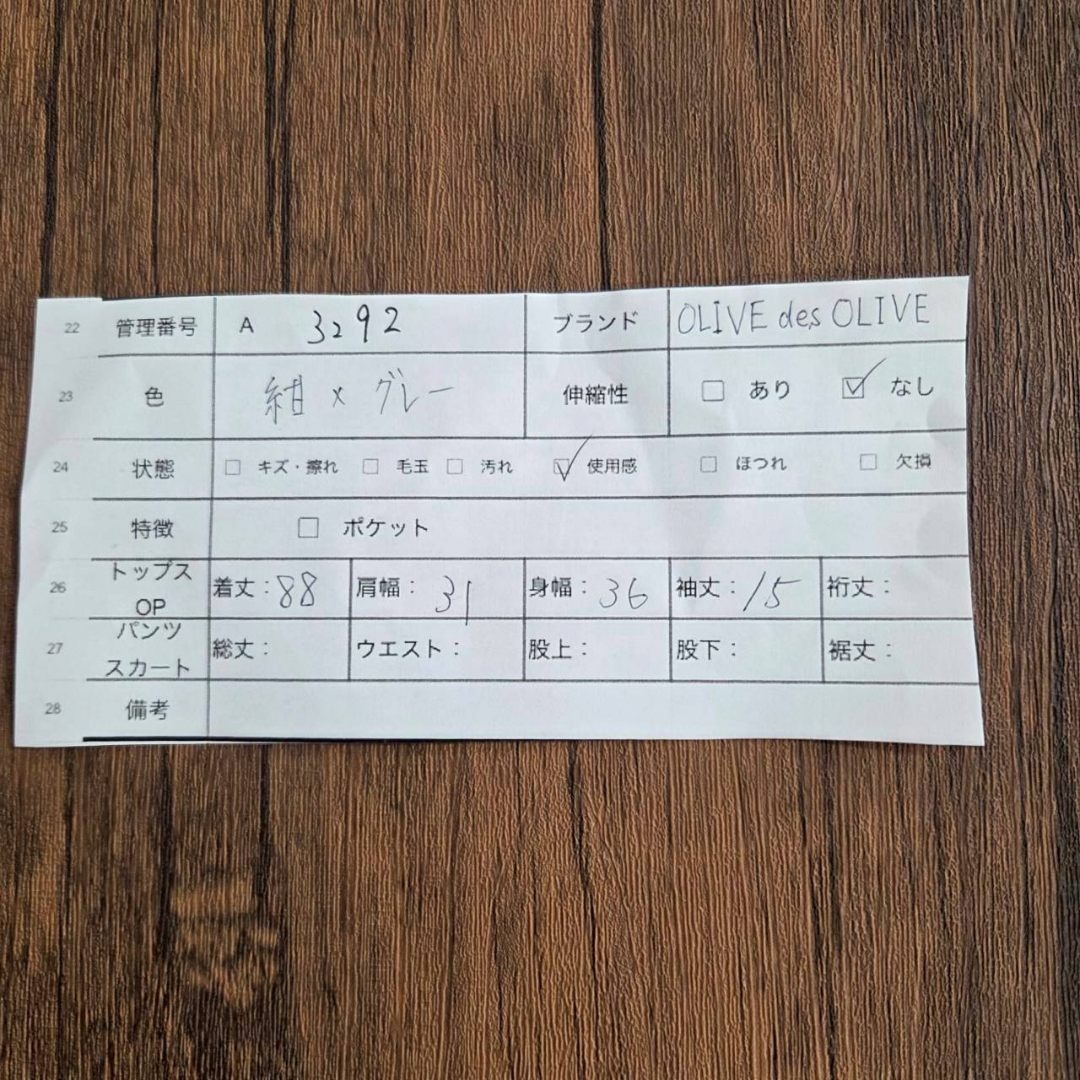 22 管理番号 A 3292 ブランド OLIVE des OLIVE
23 色 紺×グレー 伸縮性 □ あり ☑ なし
24 状態 □ キズ・擦れ □ 毛玉 □ 汚れ ☑ 使用感 □ ほつれ □ 欠損
25 特徴 □ ポケット
26 トップス OP 着丈：88 肩幅：31 身幅：36 袖丈：15 裄丈：
27 パンツ スカート 総丈： ウエスト： 股上： 股下： 裾丈：
28 備考